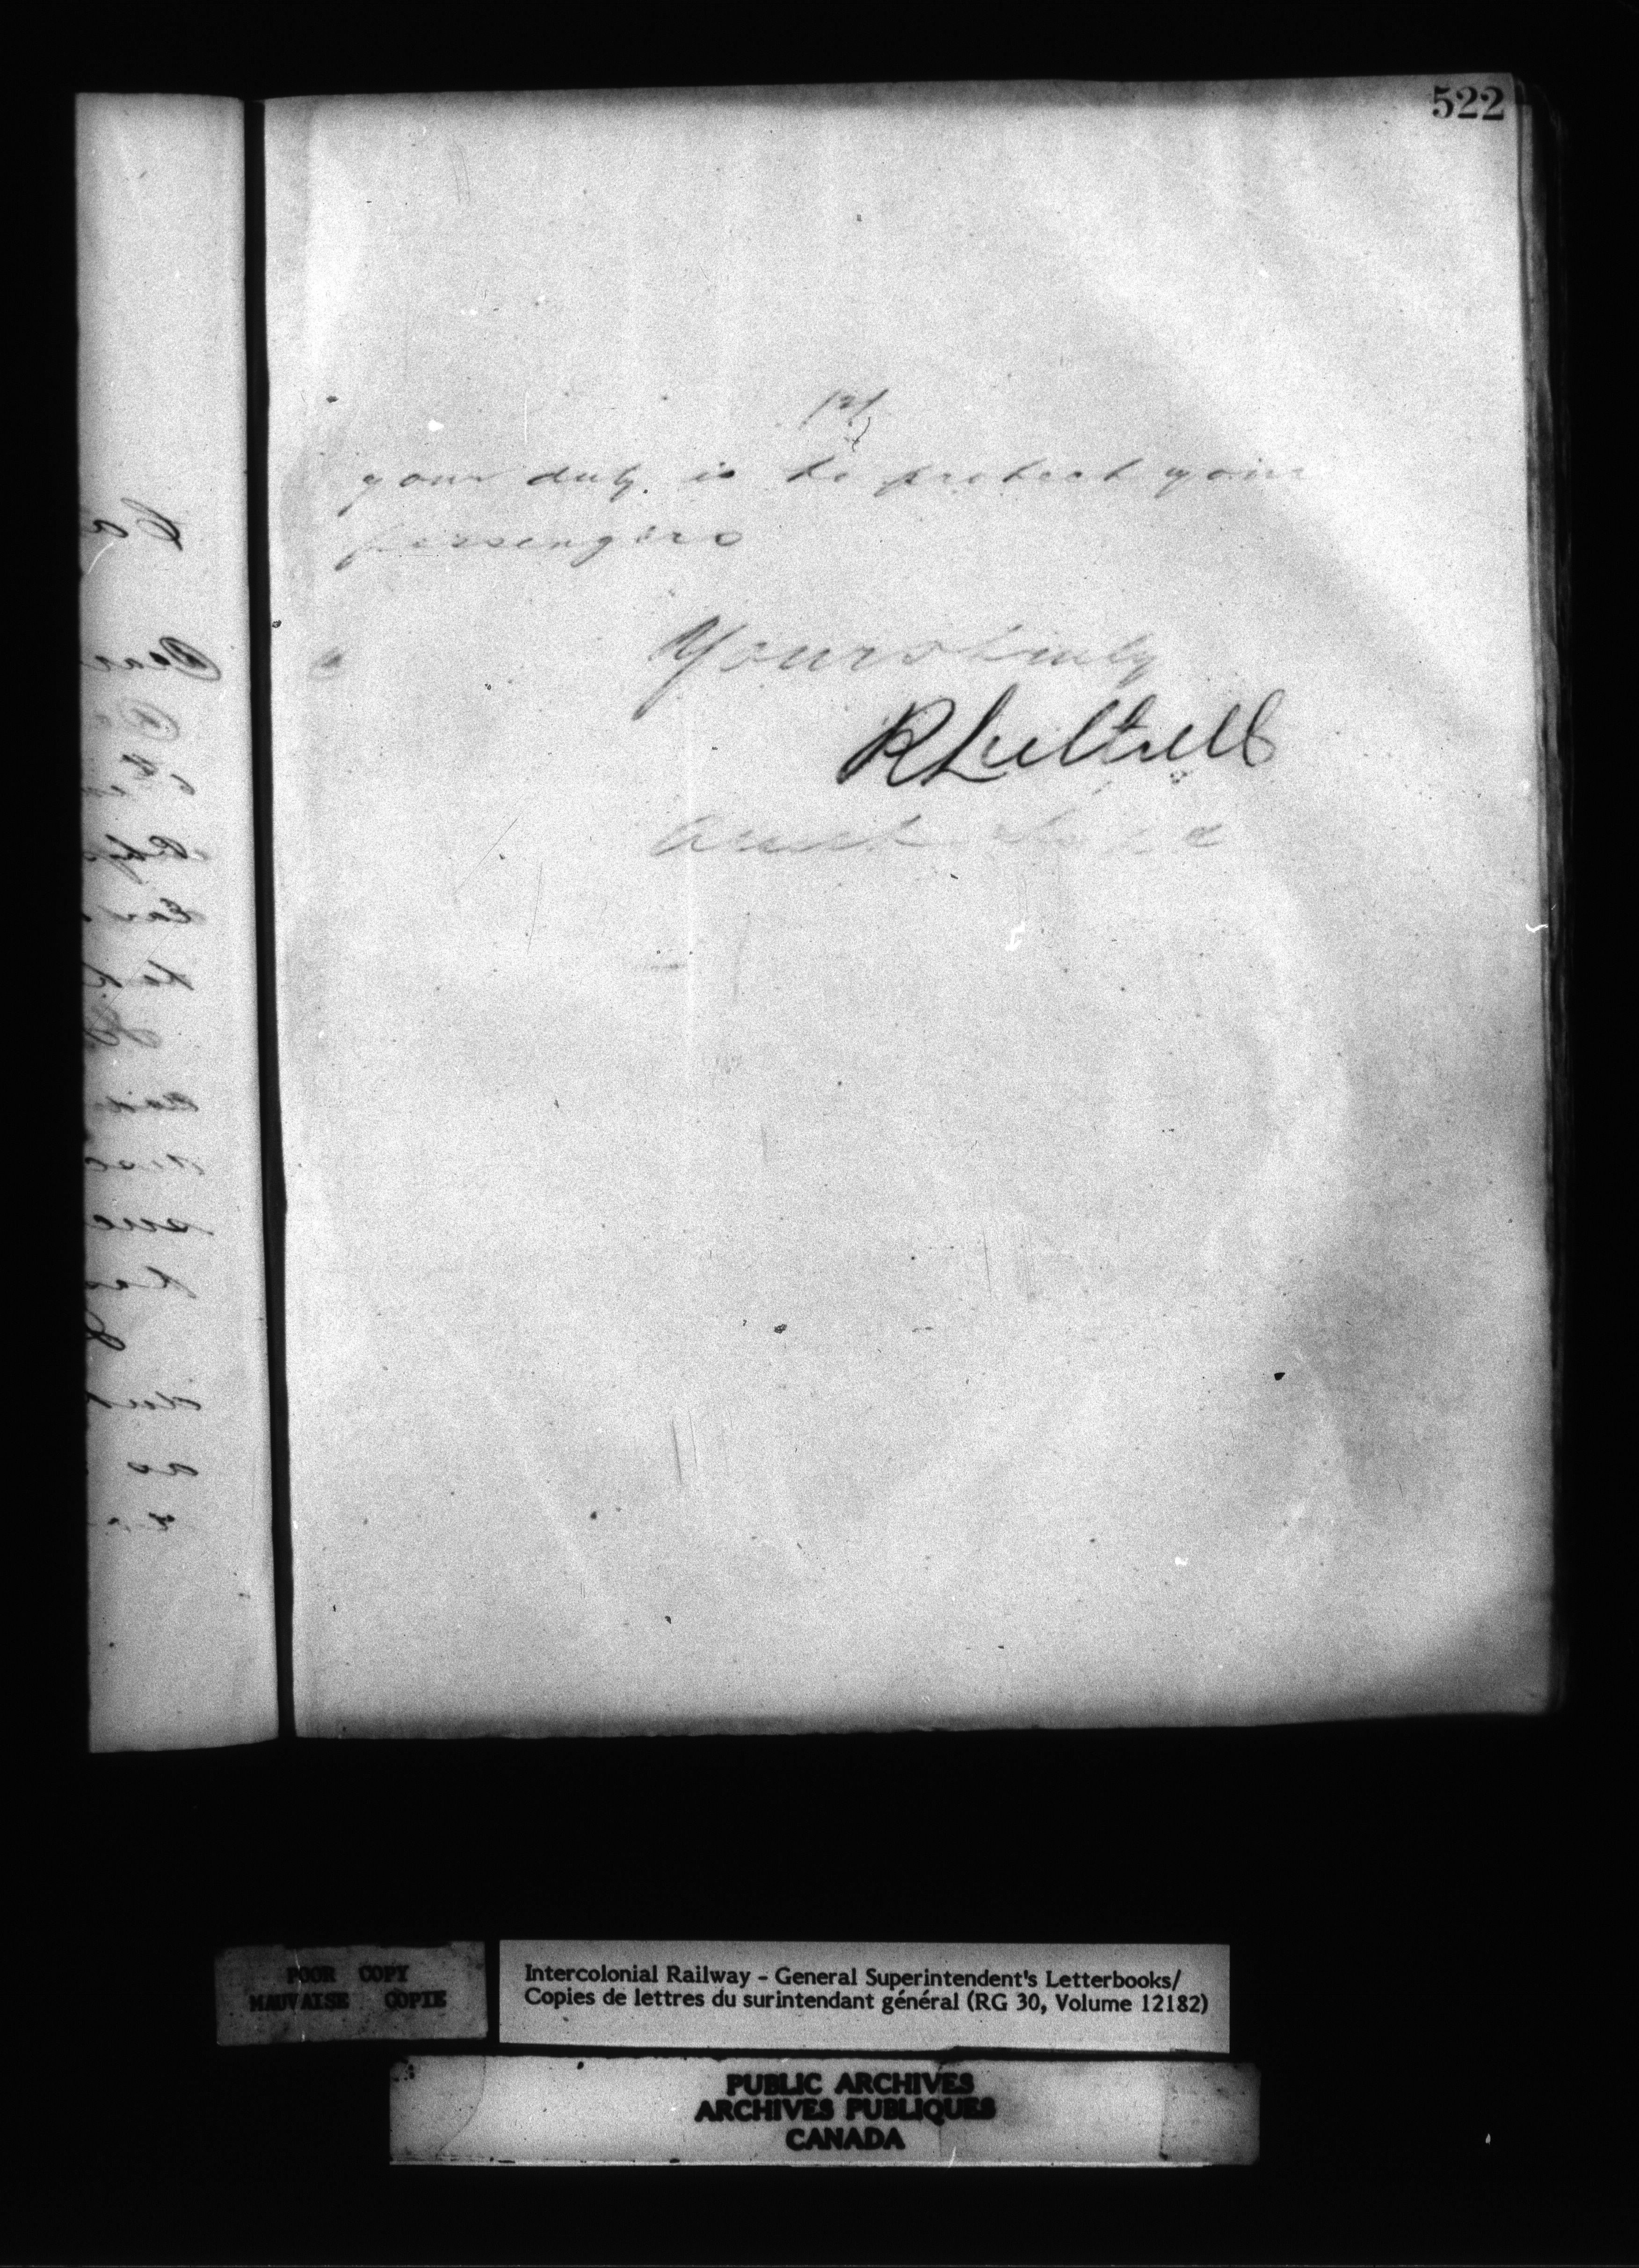 522
your duty is to protect your
passengers
Yours truly
R Luttrell
POOR COPY
MAUVAISE COPIE
Intercolonial Railway - General Superintendent's Letterbooks/
Copies de lettres du surintendant général (RG 30, Volume 12182)
PUBLIC ARCHIVES
ARCHIVES PUBLIQUES
CANADA